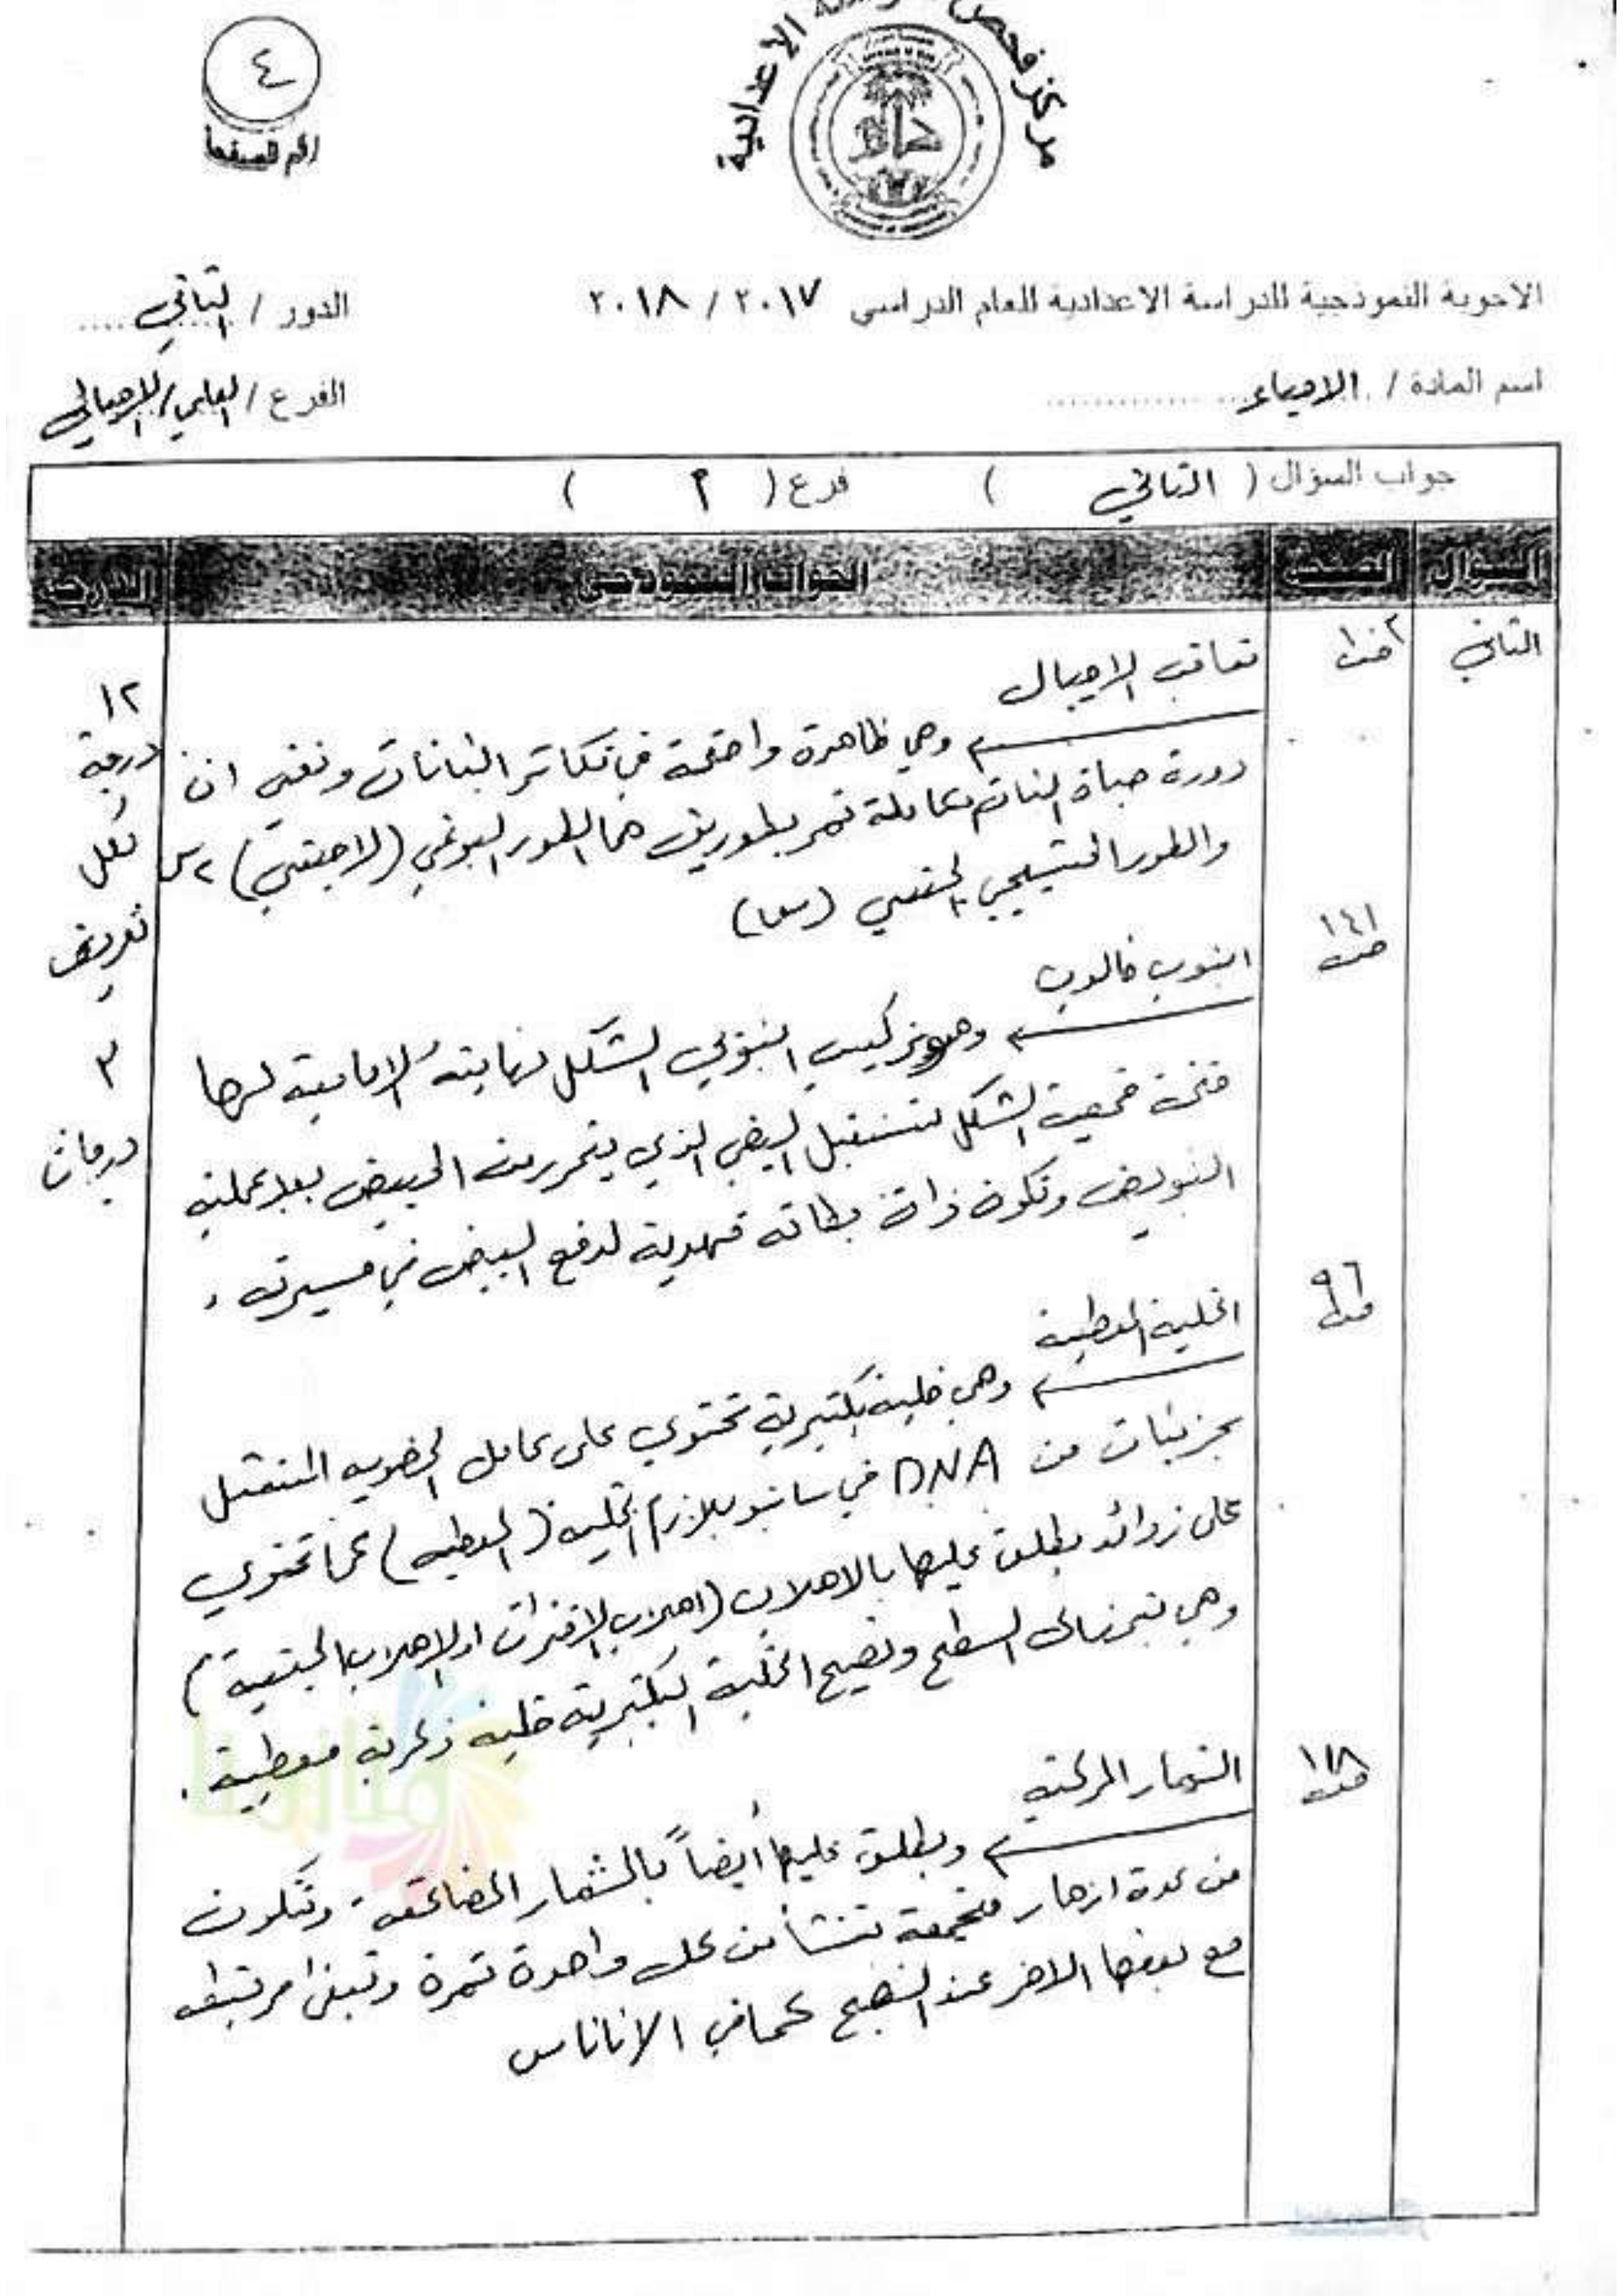 مركز فحص الدراسة الاعدادية
٤
رقم الصفحة
الاجوبة النموذجية للدراسة الاعدادية للعام الدراسي ٢٠١٧ / ٢٠١٨
الدور / الثاني
اسم المادة / الاحياء
الفرع / العلمي / الاحيائي
جواب السؤال ( الثاني ) فرع ( أ )
السؤال الصفحة الجواب النموذجي الدرجة
الثاني
تعاقب الاجيال
وهي ظاهرة واضحة في تكاثر النباتات وتعني ان
دورة حياة النبات متكاملة تمر بطورين هما الطور البوغي (لاجنسي) ٢س
والطور المشيجي الجنسي (س١)
١٢
درجة
لكل
تعريف
٣
درجات
ص ١٤١
انبوب فالوب
وهو تركيب انبوبي الشكل نهايته الامامية لها
فتحة قمعية الشكل تستقبل البيض الذي يتحرر من المبيض بعد عملية
التبويض وتكون ذات بطانة مهدبة لدفع البيض في مسيرته .
ص ٩٦
الخلية المعطية
وهي خلية بكتيرية تحتوي على عامل الخصوبة المتمثل
بجزيئات من DNA في سايتوبلازم الخلية (المعطية) كما تحتوي
على زوائد يطلق عليها بالاهلاب (اهلاب الاقتران او الاهلاب الجنسية)
وهي تبرز الى السطح وتصبح الخلية البكتيرية خلية ذكرية معطية .
ص ١١٨
الثمار المركبة
ويطلق عليها أيضاً بالثمار المضاعفة وتتكون
من عدة ازهار متجمعة تنشأ من كل واحدة ثمرة وتبقى مرتبطة
مع بعضها الاخر عند النضج كما في الاناناس
منارنا